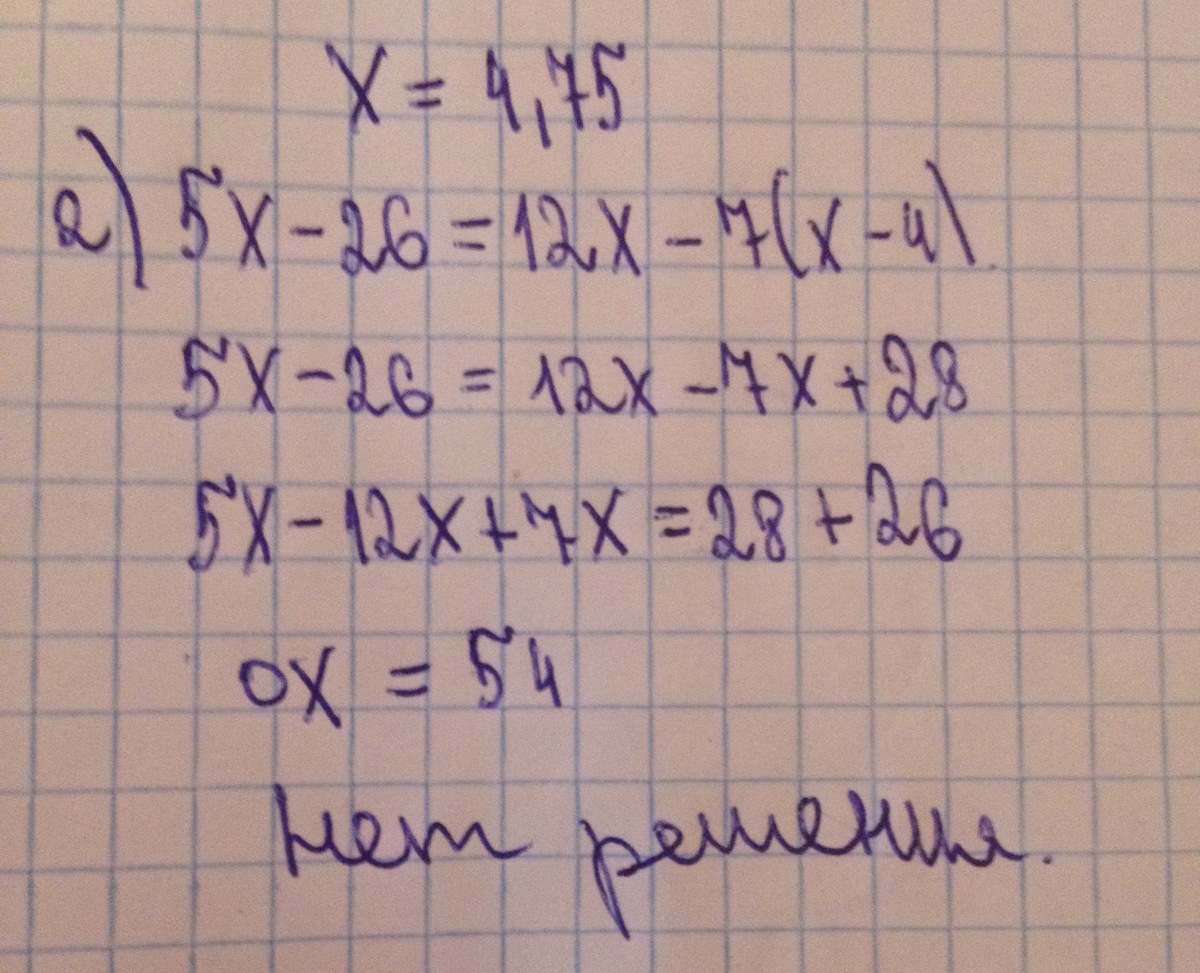 x = 4,75
2) 5x - 26 = 12x - 7(x - 4).
5x - 26 = 12x - 7x + 28
5x - 12x + 7x = 28 + 26
0x = 54
нет решения.